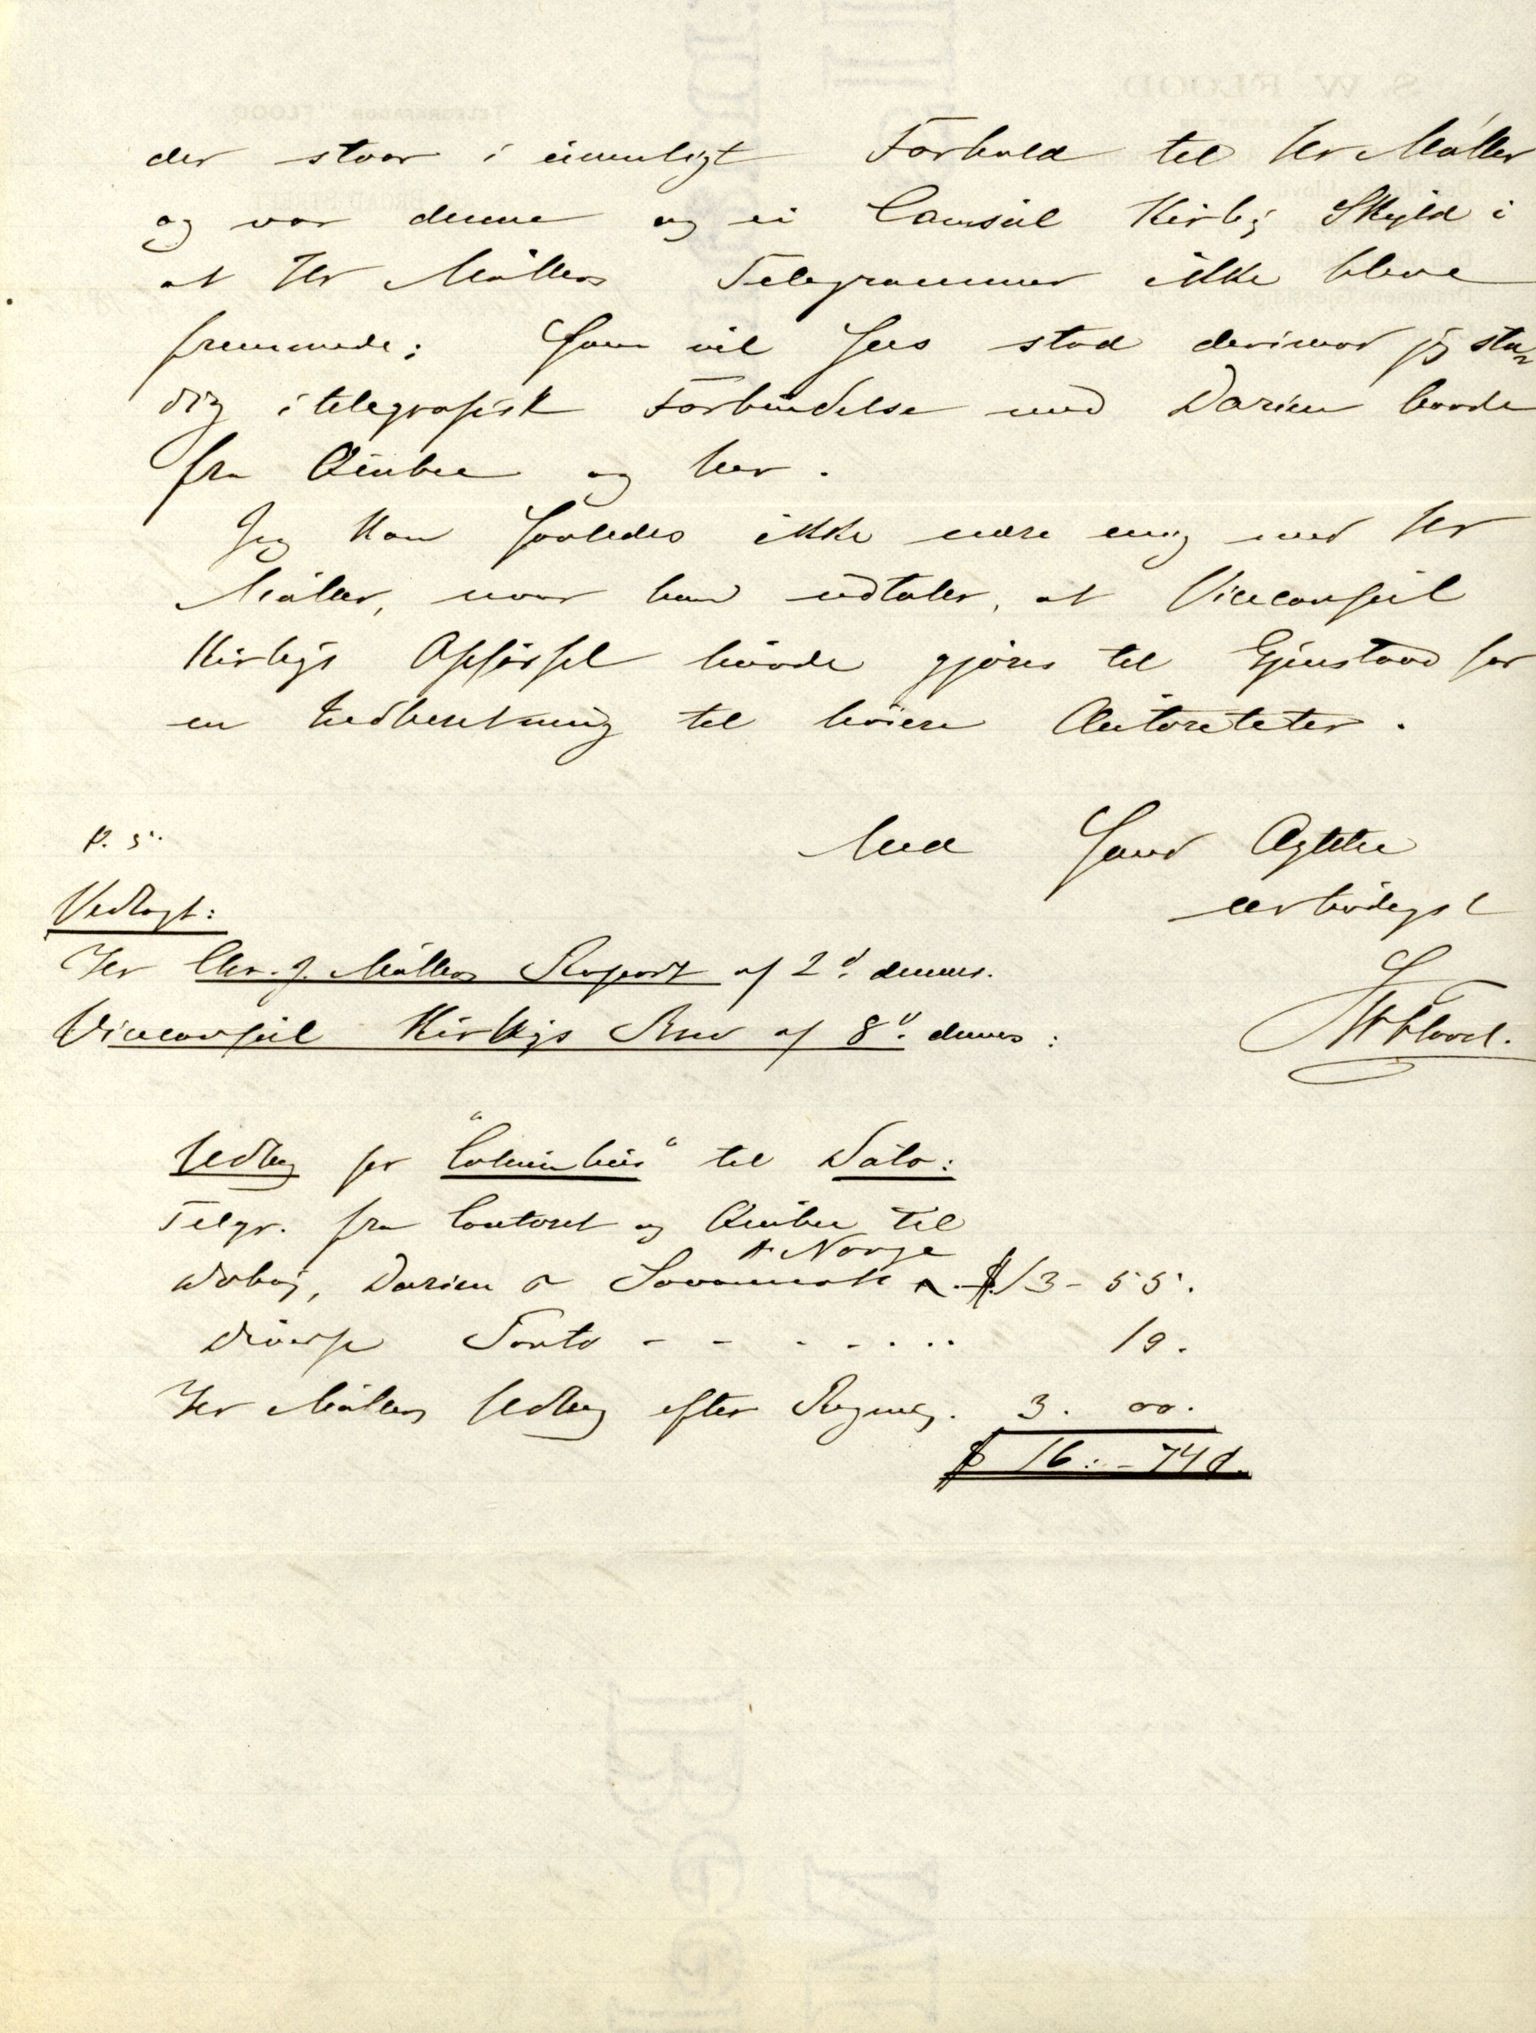 der staar i uvenligt Forhold til Hr Møller
og var denne og ei Consul Kirby Skyld i
at Hr Møllers Telegrammer ikke bleve
fremmede; Som vil sees stod derimod jeg sta=
dig i telegrafisk Forbindelse med Darien baade
fra Quebec og her.
Jeg kan saaledes ikke enes mig med Hr
Møller, naar han udtaler, at Viceconsul
Kirbys Opførsel burde gjøres til Gjenstand for
en Indberetning til høiere Autoriteter.
Med Sand Agtelse
ærbødigst
P. 5.
Vedlagt:
Hr Chr. J. Møllers Rapport af 2d. dennes.
Viceconsul Kirbys Brev af 8d. dennes:
SW Flood.
Udlæg for "Columbus" til Dato:
Telgr. fra Contoret og Quebec til
Doboy, Darien & Savannah & Norge $13-55.
Diverse Porto - - - - - - - 19.
Hr Møllers Udlæg efter Regning. 3. 00.
$ 16: - 74 c.
S. W. FLOOD.